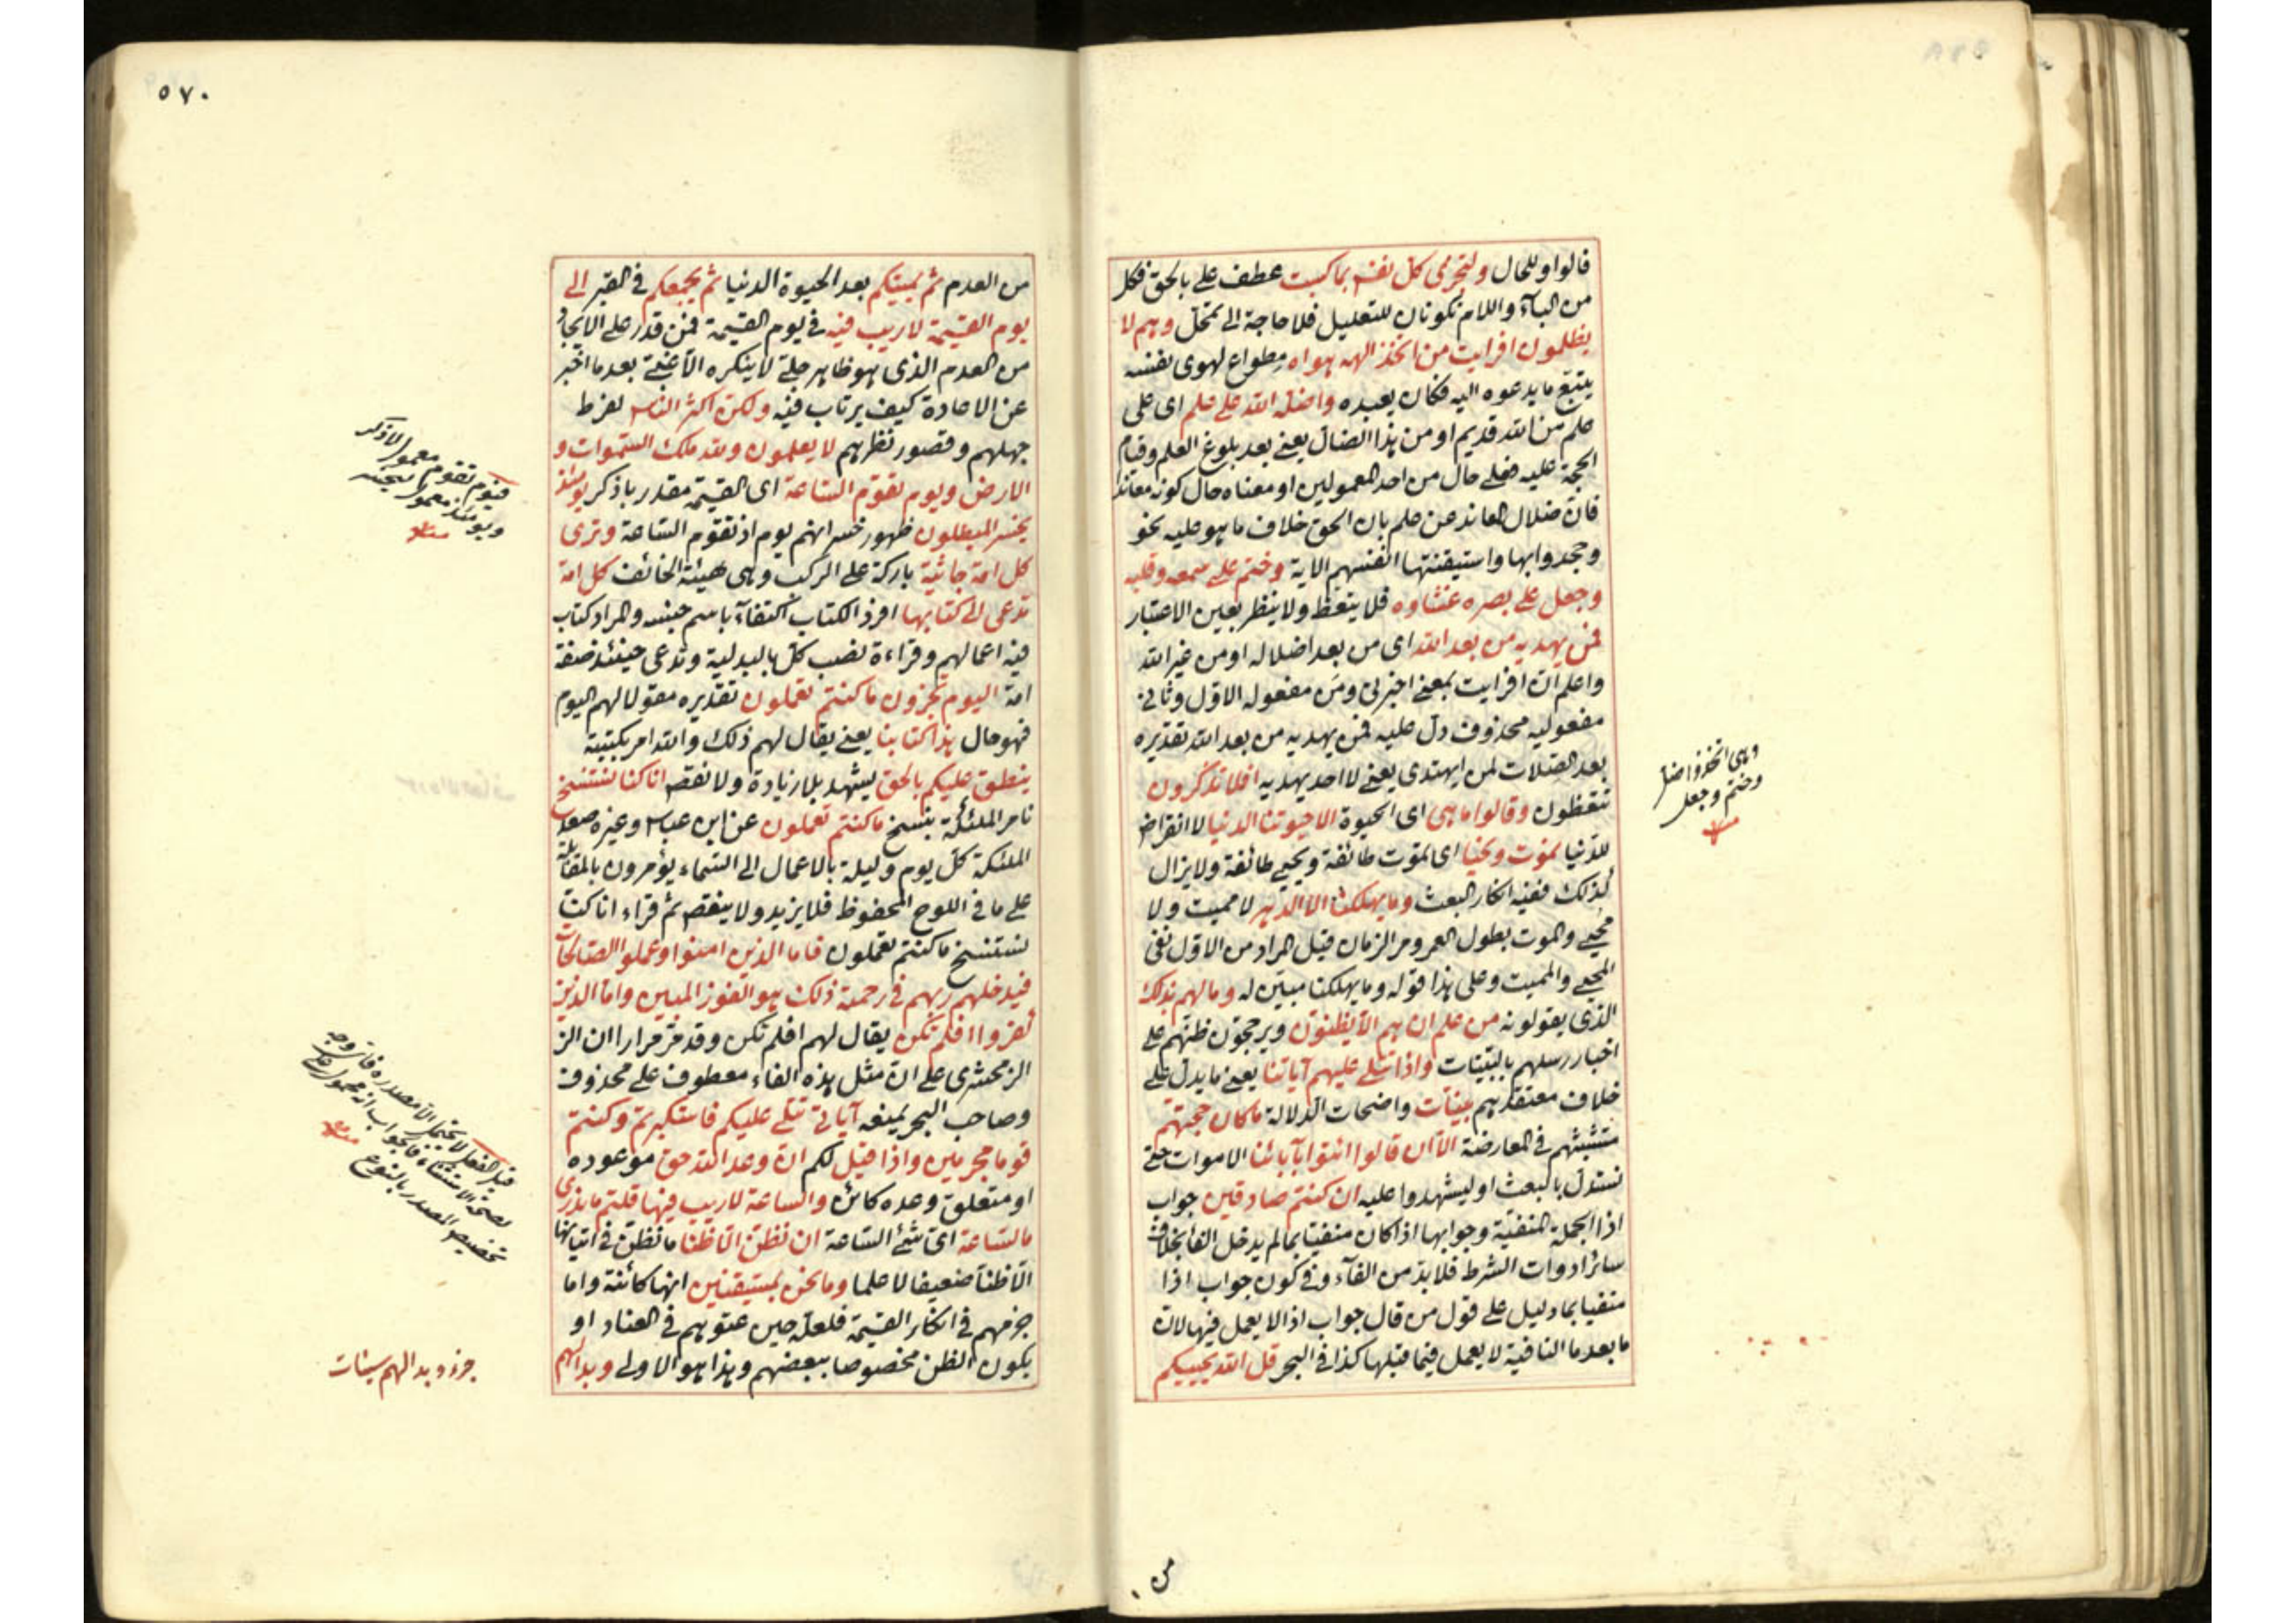 قالوا وللحال ولتجزى كل نفس بما كسبت عطف على بالحق فكل
من الباء واللام تكونان للتعليل فلا حاجة الى تمحل وهم لا
يظلمون افرايت من اتخذ الهه هواه مطواع لهوى نفسه
يتبع ما يدعوه اليه فكان يعبده واضله الله على علم اى على
علم من الله قديم او من هذا الضال يعنى بعد بلوغ العلم وقيام
الحجة عليه فعلى حال من احد المعمولين او معناه حال كونه معاندا
فان ضلال المعاند عن علم بان الحق خلاف ما هو عليه نحو
وجحدوا بها واستيقنتها انفسهم الاية وختم على سمعه وقلبه
وجعل على بصره غشاوة فلا يتعظ ولا ينظر بعين الاعتبار
فمن يهديه من بعد الله اى من بعد اضلاله او من غير الله
واعلم ان افرايت بمعنى اخبرنى ومن مفعوله الاول وثانى
مفعوليه محذوف دل عليه فمن يهديه من بعد الله تقديره
بعد الصلات لمن ايهتدى يعنى لا احد يهديه افلا تذكرون
تتعظون وقالوا ما هى اى الحيوة الا حيوتنا الدنيا لا انقراض
للدنيا نموت ونحيا اى تموت طائفة ويحيى طائفة ولا يزال
كذلك ففيه انكار البعث وما يهلكنا الا الدهر لا مميت ولا
محيى والموت بطول العمر ومر الزمان قيل المراد من الاول نفى
المحيى والمميت وعلى هذا قوله وما يهلكنا مبين له وما لهم بذلك
الذى يقولونه من علم ان هم الا يظنون ويرجحون ظنهم على
اخبار رسلهم بالبينات واذا تتلى عليهم آياتنا يعنى ما يدل على
خلاف معتقدهم بينات واضحات الدلالة ما كان حجتهم
متشبثهم فى المعارضة الا ان قالوا ائتوا بآبائنا الاموات حتى
نستدل بالبعث او ليشهدوا عليه ان كنتم صادقين جواب
اذا الجملة المنفية وجوابها اذا كان منفيا بما لم يدخل الفا بخلاف
سائر ادوات الشرط فلا بد من الفاء وفى كون جواب اذا
منفيا بما دليل على قول من قال جواب اذا لا يعمل فيها لان
ما بعد ما النافية لا يعمل فيما قبلها كذا فى البحر قل الله يحييكم
وهى اتخذ واضل
وختم وجعل
منه
من
٥٧٠
من العدم ثم يميتكم بعد الحيوة الدنيا ثم يجمعكم فى القبر الى
يوم القيمة لا ريب فيه فى يوم القيمة فمن قدر على الايجاد
من العدم الذى هو ظاهر جلى لا ينكره الا غبى بعد ما اخبر
عن الاعادة كيف يرتاب فيه ولكن اكثر الناس لفرط
جهلهم وقصور نظرهم لا يعلمون ولله ملك السموات و
الارض ويوم تقوم الساعة اى القيمة مقدر باذكر يومئذ
يخسر المبطلون ظهور خسرانهم يوم اذ تقوم الساعة وترى
كل امة جاثية باركة على الركب وهى هيئة الخائف كل امة
تدعى الى كتابها افرد الكتاب اكتفاء باسم جنسه والمراد كتاب
فيه اعمالهم وقراءة نصب كل بالبدلية وتدعى حينئذ صفة
امة اليوم تجزون ما كنتم تعملون تقديره مقولا لهم اليوم
فهو حال هذا كتابنا يعنى يقال لهم ذلك والله امر بكتبته
ينطق عليكم بالحق يشهد بلا زيادة ولا نقص انا كنا نستنسخ
نامر الملئكة بنسخ ما كنتم تعملون عن ابن عباس وغيره صعد
الملئكة كل يوم وليلة بالاعمال الى السماء يؤمرون بالمقابلة
على ما فى اللوح المحفوظ فلا يزيد ولا ينقص ثم قراء انا كنا
نستنسخ ما كنتم تعملون فاما الذين امنوا وعملوا الصالحات
فيدخلهم ربهم فى رحمته ذلك هو الفوز المبين واما الذين
كفروا افلم تكن يقال لهم افلم تكن وقد مر مرارا ان الز
الزمخشرى على ان مثل هذه الفاء معطوف على محذوف
وصاحب البحر يمنعه آياتى تتلى عليكم فاستكبرتم وكنتم
قوما مجرمين واذا قيل لكم ان وعد الله حق موعوده
او متعلق وعده كائن والساعة لا ريب فيها قلتم ما ندرى
ما الساعة اى شئ الساعة ان نظن الا ظنا ما نظن فى اتيانها
الا ظنا ضعيفا لا علما وما نحن بمستيقنين انها كائنة واما
جزمهم فى انكار القيمة فلعله حين عتوهم فى العناد او
يكون الظن مخصوصا ببعضهم وهذا هو الاولى وبدا لهم
فيوم تقوم معمول لاذكر
ويومئذ معمول يخسر
منه
قيل الفعل لا يحتمل الا مصدره فان وجه
صحة الاستثناء فالجواب انه محمول على
تخصيص المصدر بالنوع
منه
جزء وبدا لهم سيئات